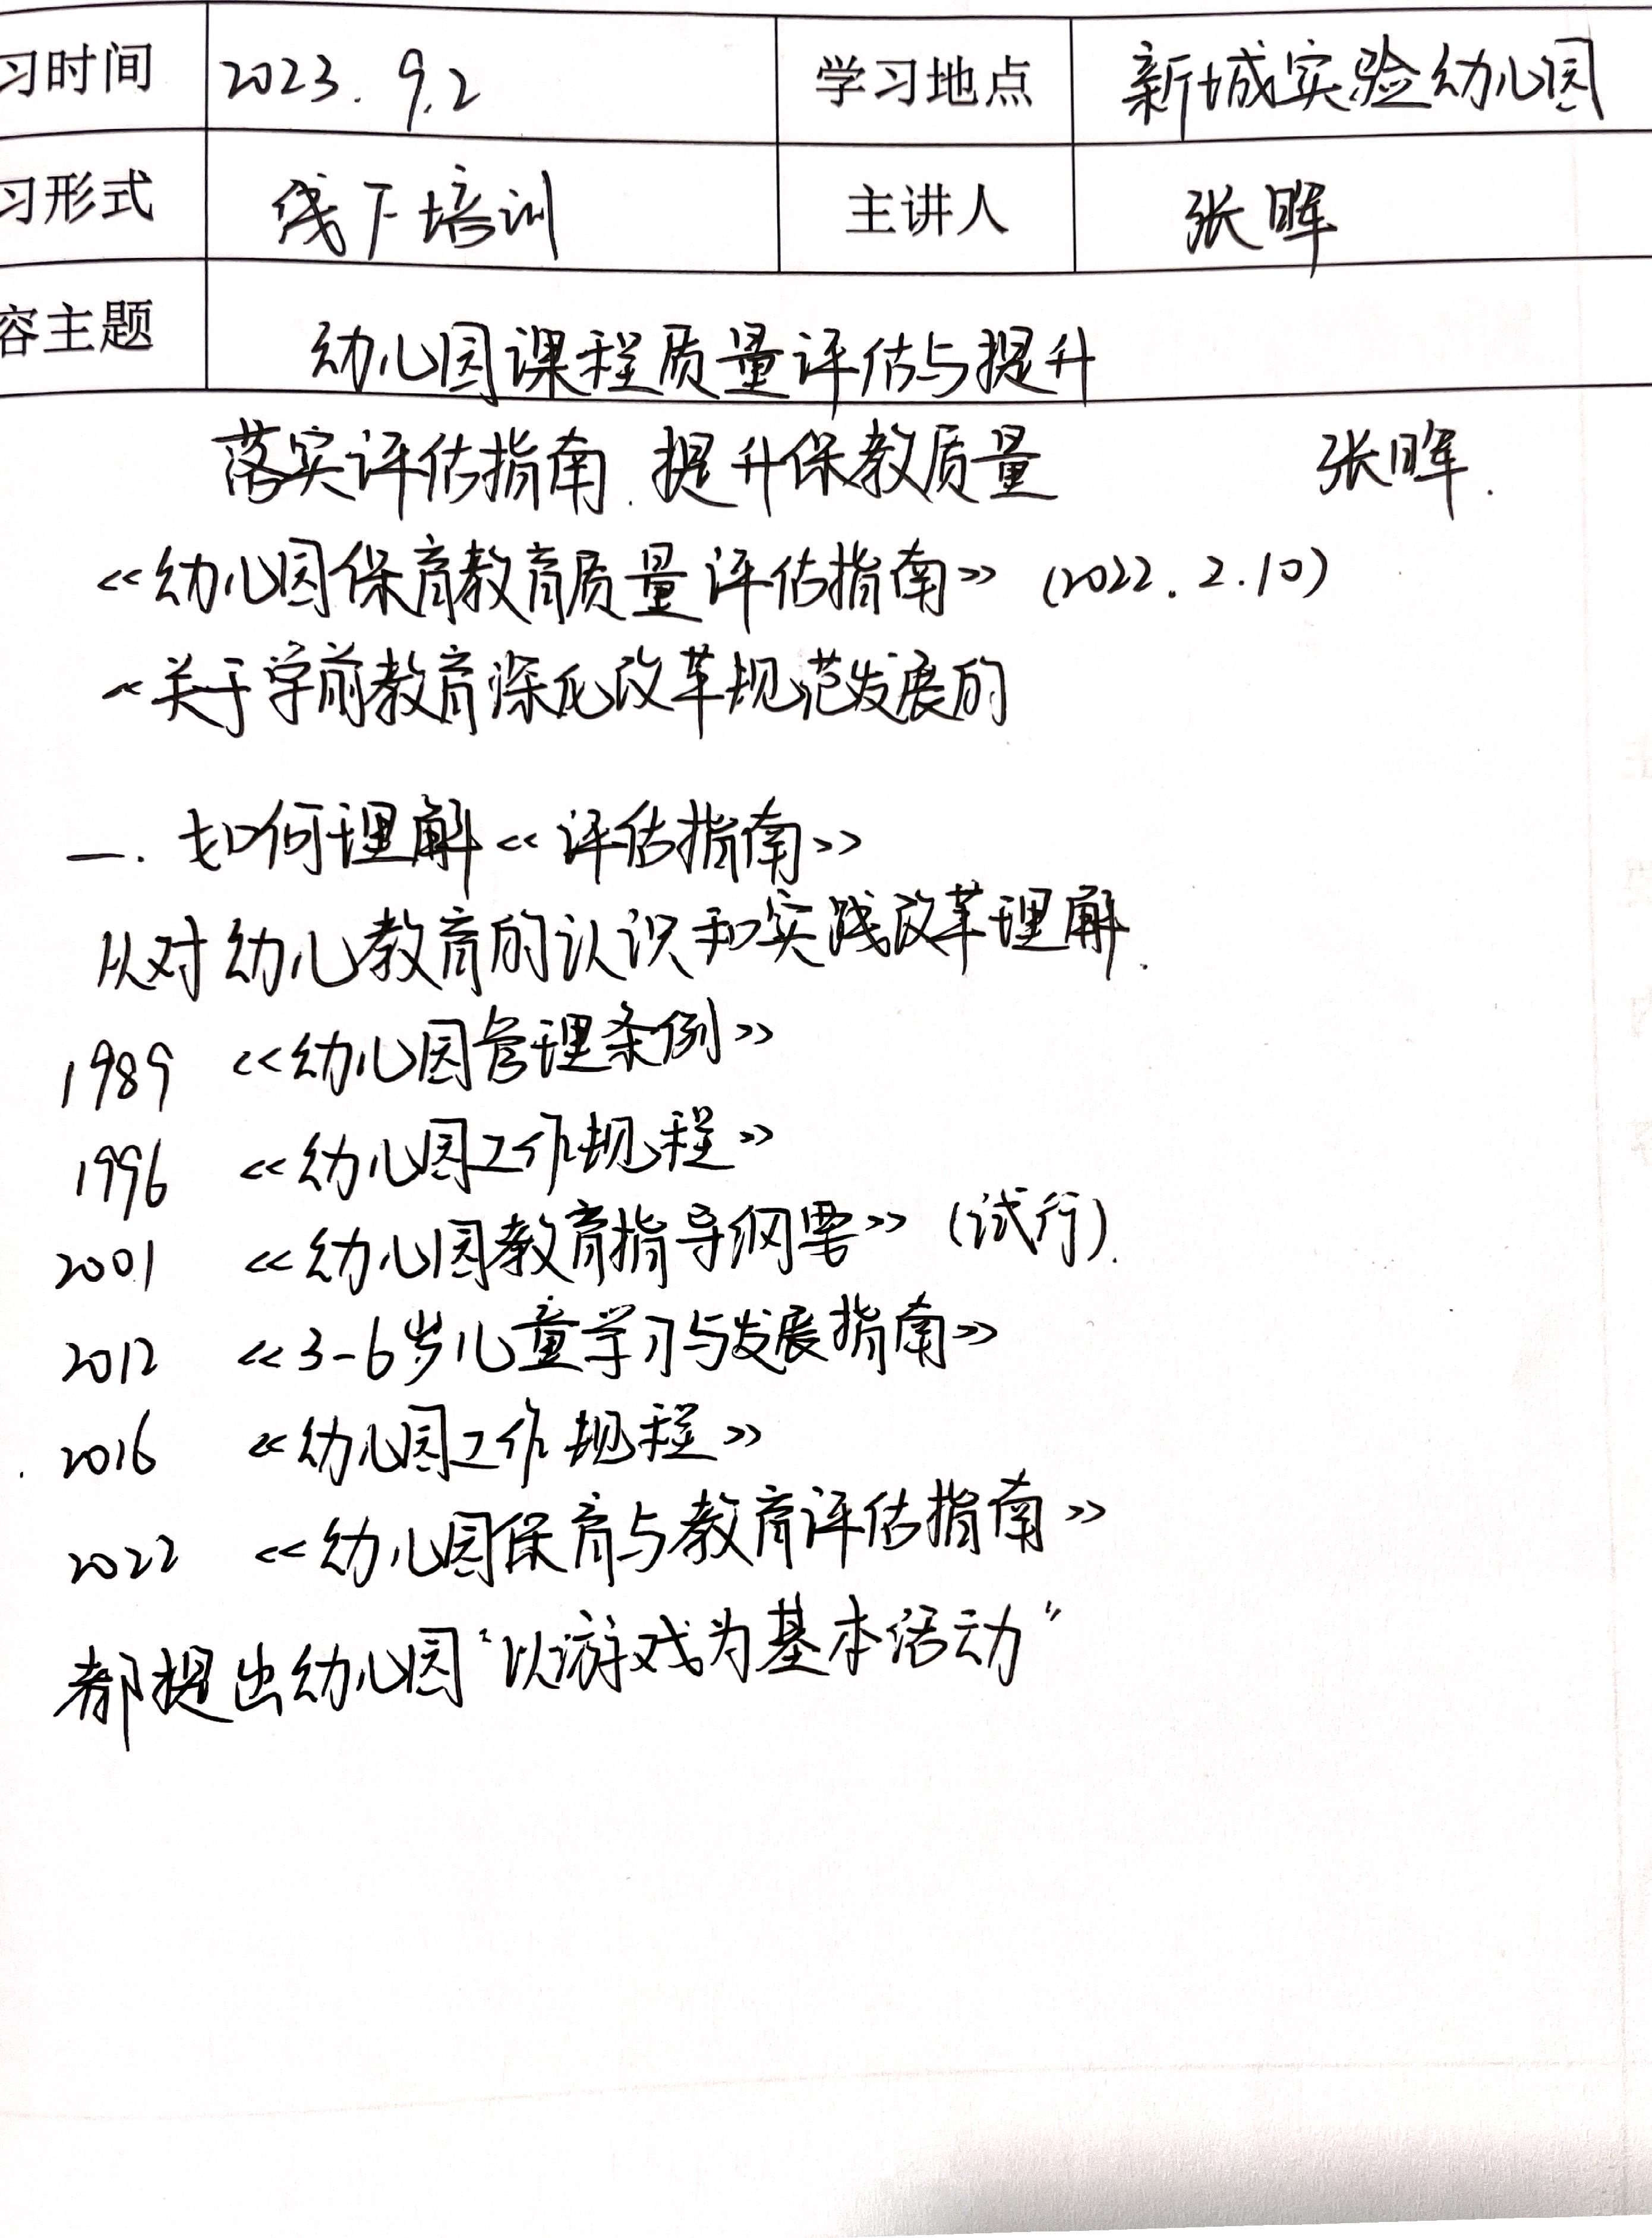 习时间 2023.9.2 学习地点 新城实验幼儿园
习形式 线下培训 主讲人 张晖
容主题 幼儿园课程质量评估与提升
落实评估指南.提升保教质量 张晖.
《幼儿园保育教育质量评估指南》(2022.2.10)
《关于学前教育深化改革规范发展的
一.如何理解《评估指南》
从对幼儿教育的认识和实践改革理解.
1989 《幼儿园管理条例》
1996 《幼儿园工作规程》
2001 《幼儿园教育指导纲要》(试行).
2012 《3-6岁儿童学习与发展指南》
2016 《幼儿园工作规程》
2022 《幼儿园保育与教育评估指南》
都提出幼儿园“以游戏为基本活动”